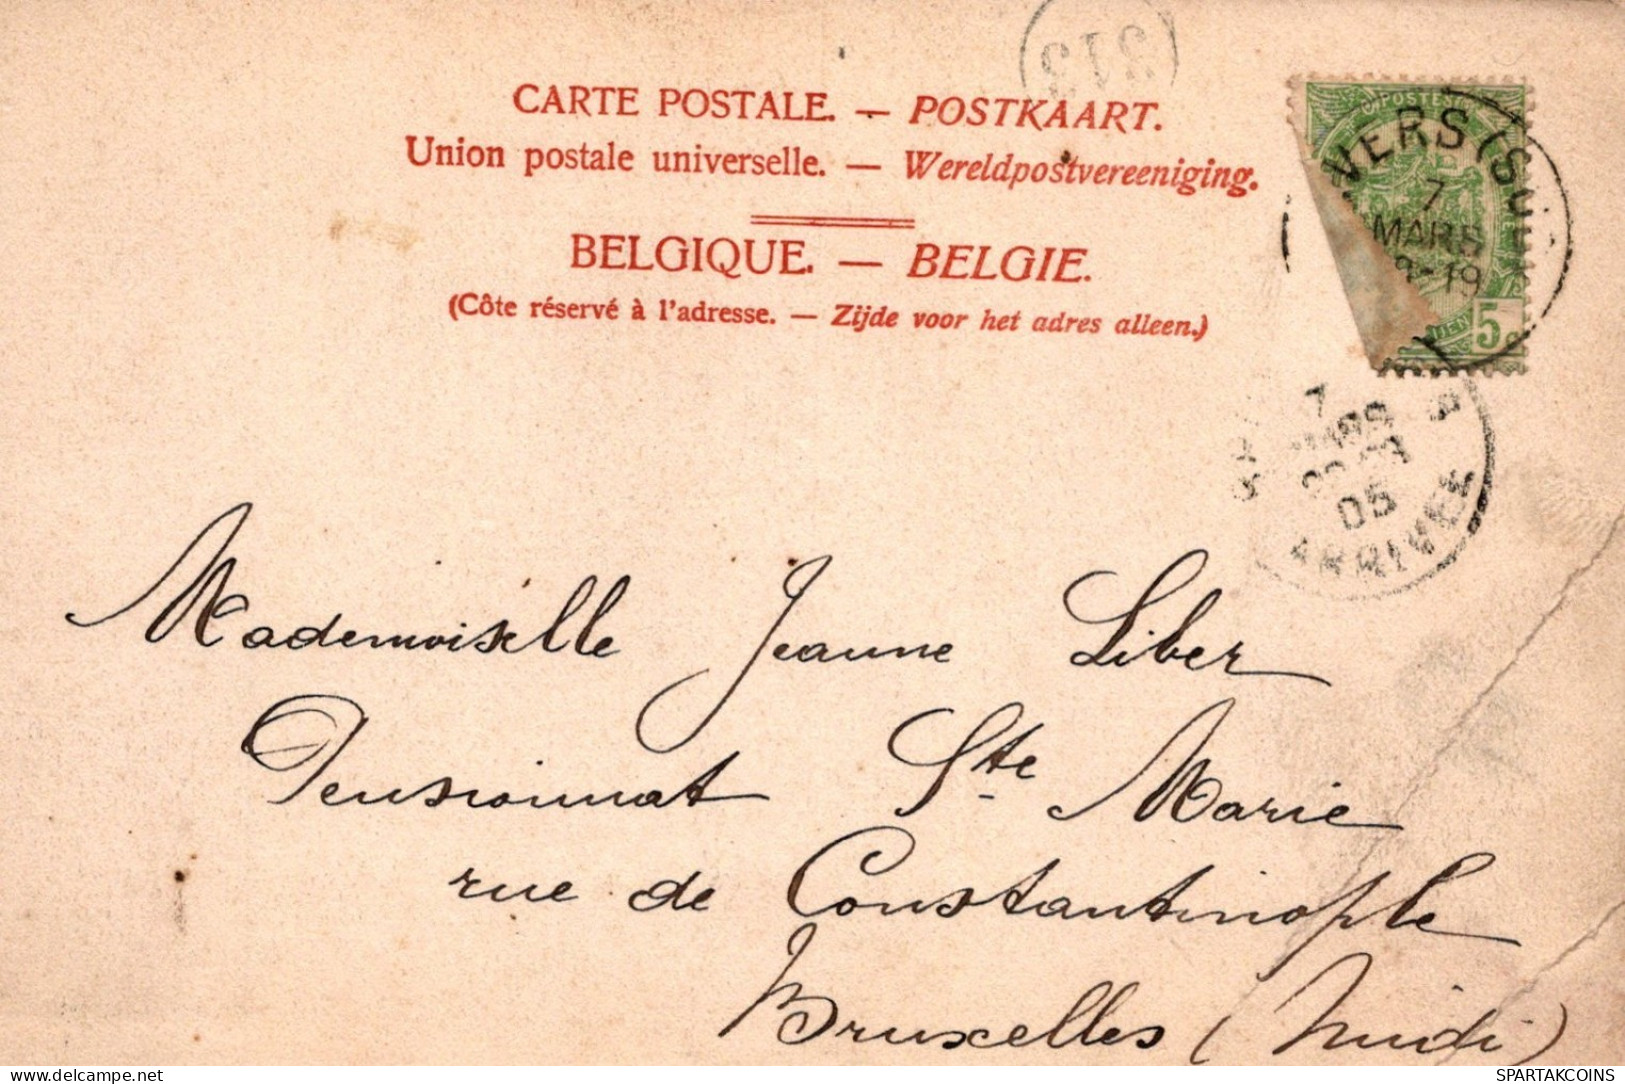 313
CARTE POSTALE. — POSTKAART.
Union postale universelle. — Wereldpostvereeniging.
BELGIQUE. — BELGIE.
(Côte réservé à l'adresse. — Zijde voor het adres alleen.)
POSTES
VERS (SUD
7
MARS
-19
5c
7
MARS
05
ARRIVEE
Mademoiselle Jeanne Liber
Pensionnat Ste Marie
rue de Constantinople
Bruxelles (Midi)
HIPPOSTCARD.COM